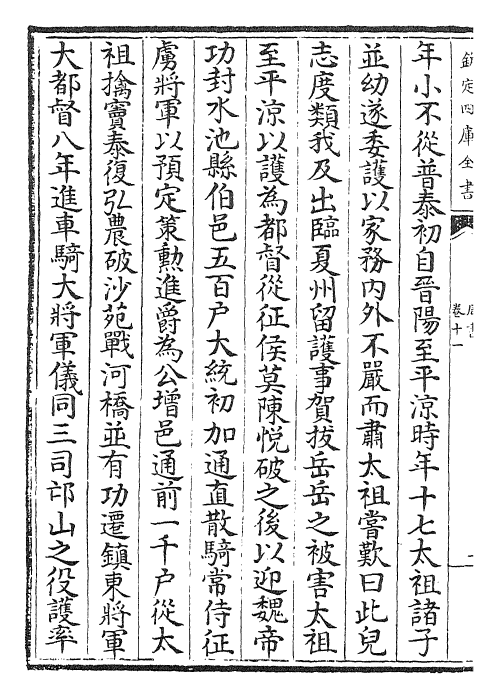 欽定四庫全書
周書
卷十一
年小不從普泰初自晉陽至平涼時年十七太祖諸子
並幼遂委護以家務内外不嚴而肅太祖嘗歎曰此兒
志度類我及出臨夏州留護事賀拔岳岳之被害太祖
至平涼以護為都督從征侯莫陳悦破之後以迎魏帝
功封水池縣伯邑五百户大統初加通直散騎常侍征
虜將軍以預定策勲進爵為公增邑通前一千户從太
祖擒竇泰復弘農破沙苑戰河橋並有功遷鎮東將軍
大都督八年進車騎大將軍儀同三司邙山之役護率